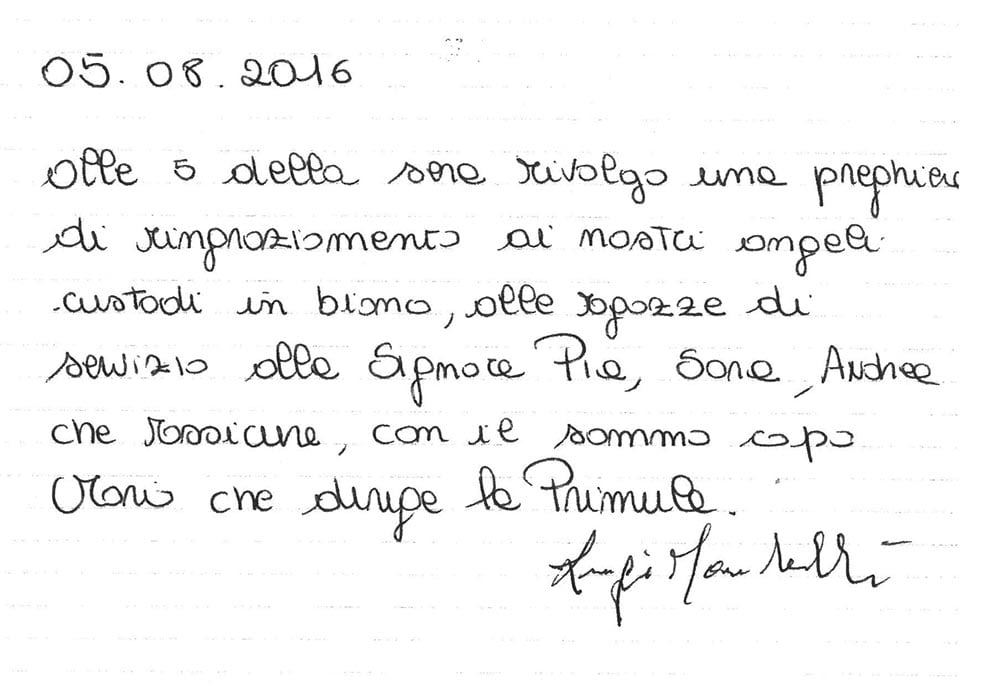 05.08.2016
Alle 5 della sera rivolgo una preghiera
di ringraziamento ai nostri angeli
custodi in biano, alle ragazze di
servizio alla Signora Pia, Sara, Andrea
che rossiane, con il sommo capo
che dirige la Primula.
Luigi Mantelli